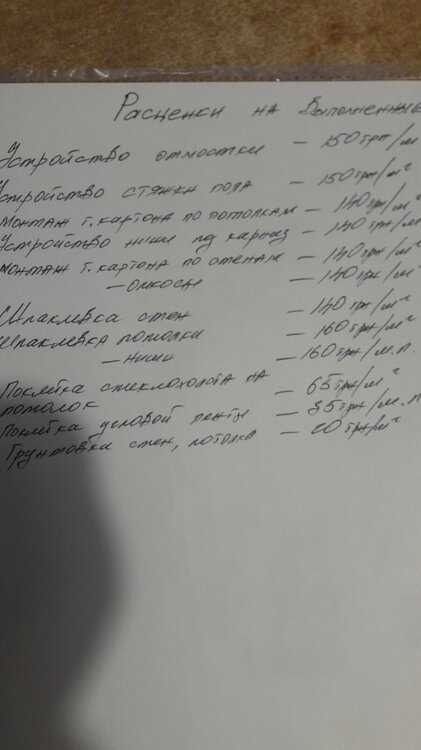 Расценки на Выполненные
Устройство отмостки – 150 грн/м
Устройство стяжек пола – 150 грн/м²
Монтаж г. картона по потолкам – 140 грн/м²
Устройство ниши под карниз – 140 грн/м
Монтаж г. картона по стенам – 140 грн/м²
– Откосы – 140 грн/м
Шпаклевка стен – 140 грн/м²
Шпаклевка потолки – 160 грн/м²
– Ниши – 160 грн/м.п.
Поклейка стеклохолста на – 65 грн/м²
потолок
Поклейка угловой ленты – 35 грн/м.п
Грунтовка стен, потолка – 20 грн/м²